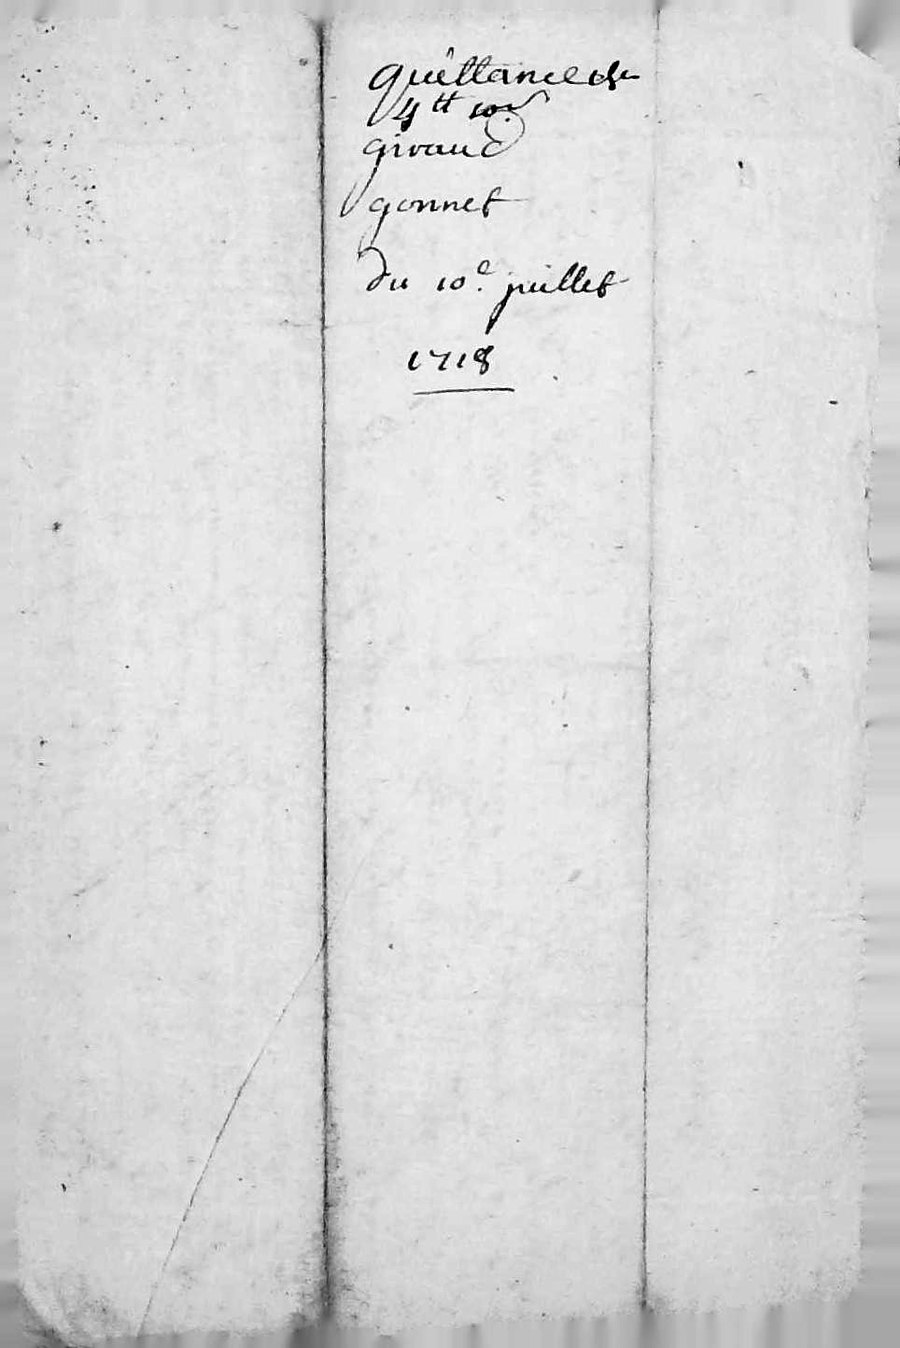 quittance de
4tt 10s
giraud
gonnet
du 10e juillet
1718